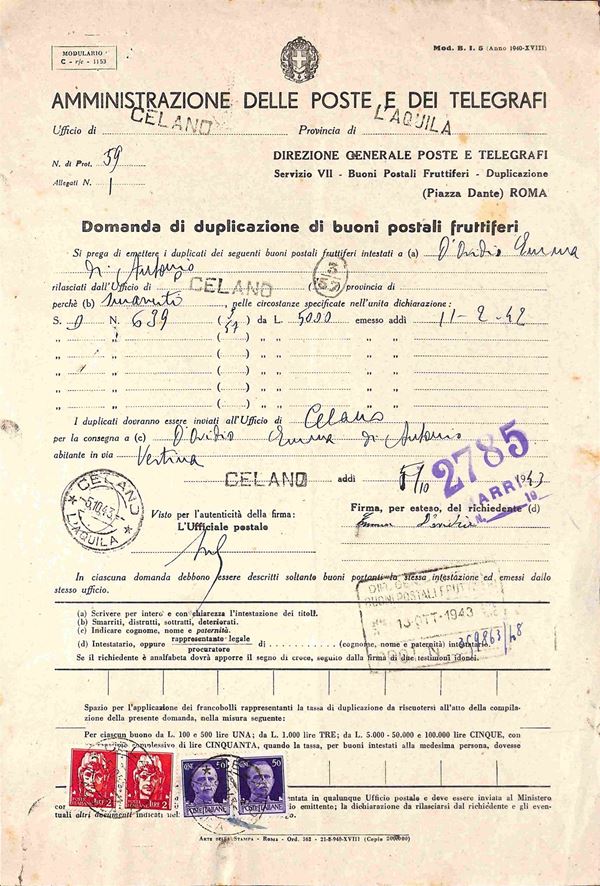 MODULARIO
C - rfc - 1153
Mod. B. I. 5 (Anno 1940-XVIII)
AMMINISTRAZIONE DELLE POSTE E DEI TELEGRAFI
Ufficio di CELANO Provincia di L'AQUILA
N. di Prot. 59
Allegati N. 1
DIREZIONE GENERALE POSTE E TELEGRAFI
Servizio VII - Buoni Postali Fruttiferi - Duplicazione
(Piazza Dante) ROMA
Domanda di duplicazione di buoni postali fruttiferi
Si prega di emettere i duplicati dei seguenti buoni postali fruttiferi intestati a (a) D'Ovidio Emma
di Antonio
rilasciati dall'Ufficio di CELANO provincia di
perchè (b) smarrito, nelle circostanze specificate nell'unita dichiarazione:
S. O N. 639 da L. 5000 emesso addì 11-2-42
" " " "
" " " "
" " " "
" " " "
" " " "
I duplicati dovranno essere inviati all'Ufficio di Celano
per la consegna a (c) D'Ovidio Emma di Antonio
abitante in via Vestina
CELANO addì 5/10 1943
2785
MARRI
N. 19
CELANO
5.10.43
L'AQUILA
Visto per l'autenticità della firma:
L'Ufficiale postale
Firma, per esteso, del richiedente (d)
Emma D'Ovidio
In ciascuna domanda debbono essere descritti soltanto buoni portanti la stessa intestazione ed emessi dallo
stesso ufficio.
DIR. GEN.
BUONI POSTALI FRUTTIFERI
13 OTT. 1943
PROT. N.
359863/48
(a) Scrivere per intero e con chiarezza l'intestazione dei titoli.
(b) Smarriti, distratti, sottratti, deteriorati.
(c) Indicare cognome, nome e paternità.
(d) Intestatario, oppure rappresentante legale / procuratore di (cognome, nome e paternità) intestatario.
Se il richiedente è analfabeta dovrà apporre il segno di croce, seguito dalla firma di due testimoni idonei.
Spazio per l'applicazione dei francobolli rappresentanti la tassa di duplicazione da riscuotersi all'atto della compila-
zione della presente domanda, nella misura seguente:
Per ciascun buono da L. 100 e 500 lire UNA; da L. 1.000 lire TRE; da L. 5.000 - 50.000 e 100.000 lire CINQUE, con
complessivo di lire CINQUANTA, quando la tassa, per buoni intestati alla medesima persona, dovesse
LIRE 2
LIRE 2
CENT. 50
POSTE ITALIANE
CENT. 50
POSTE ITALIANE
entata in qualunque Ufficio postale e deve essere inviata al Ministero
con
io emittente; la dichiarazione da rilasciarsi dal richiedente e gli even-
tuali altri documenti indicati nel
Arte della Stampa - Roma - Ord. 162 - 21-8-940-XVIII (Copie 200.000)